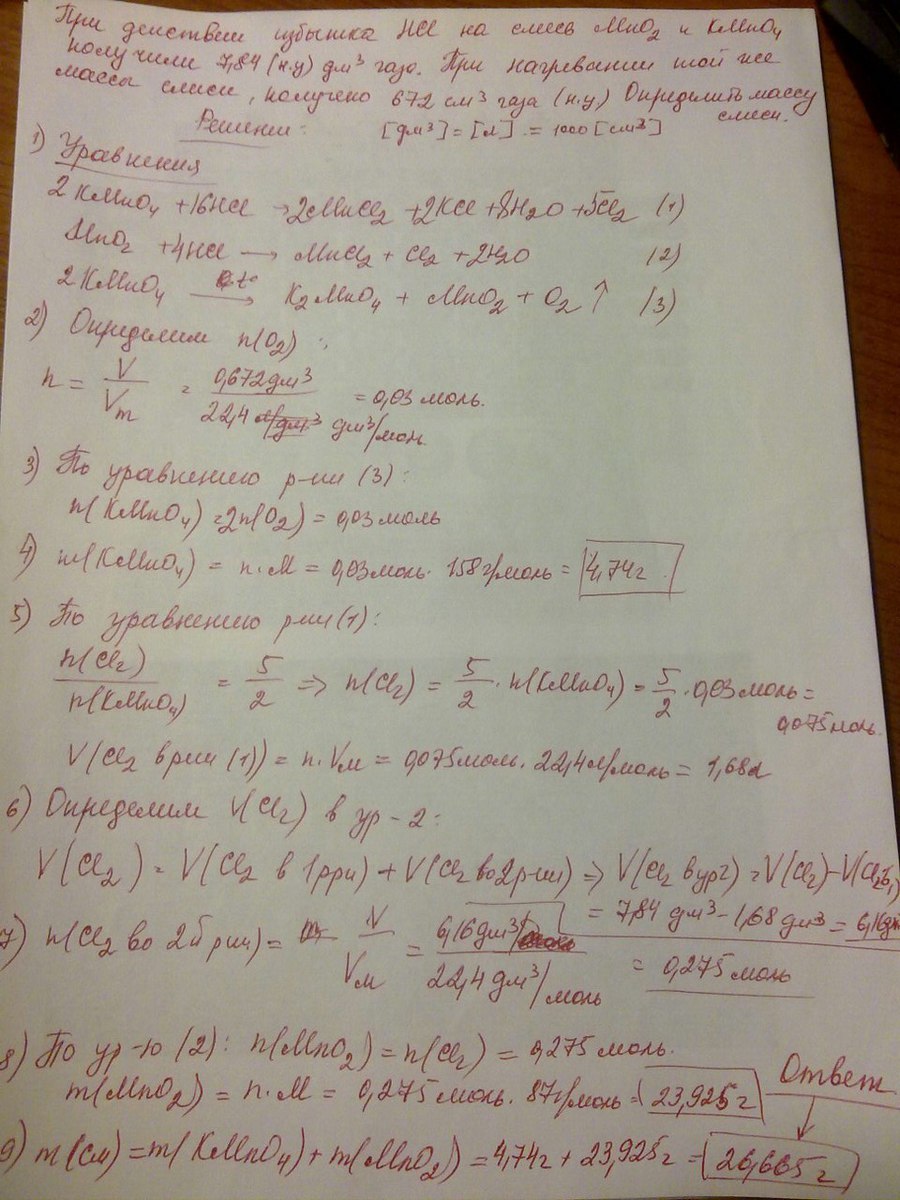 При действии избытка HCl на смесь MnO2 и KMnO4
получили 7,84 (н.у) дм³ газа. При нагревании той же
массы смеси, получено 672 см³ газа (н.у) Определить массу
смеси.
Решение: [дм³] = [л] = 1000 [см³]
1) Уравнения
2 KMnO4 + 16HCl → 2MnCl2 + 2KCl + 8H2O + 5Cl2 (1)
MnO2 + 4HCl → MnCl2 + Cl2 + 2H2O (2)
2 KMnO4 t° → K2MnO4 + MnO2 + O2 ↑ (3)
2) Определим n(O2):
n = V/Vm = 0,672 дм³/22,4 дм³/моль = 0,03 моль.
3) По уравнению р-ии (3):
n(KMnO4) = 2n(O2) = 0,03 моль
4) m(KMnO4) = n·M = 0,03 моль · 158 г/моль = 4,74 г.
5) По уравнению р-ии (1):
n(Cl2)/n(KMnO4) = 5/2 => n(Cl2) = 5/2 · n(KMnO4) = 5/2 · 0,03 моль =
0,075 моль.
V(Cl2 в р-ии (1)) = n·Vм = 0,075 моль · 22,4 л/моль = 1,68 л
6) Определим V(Cl2) в ур-2:
V(Cl2) = V(Cl2 в 1 р-ии) + V(Cl2 во 2 р-ии) => V(Cl2 в ур2) = V(Cl2) - V(Cl2 в 1)
= 7,84 дм³ - 1,68 дм³ = 6,16 дм
7) n(Cl2 во 2й р-ии) = V/Vм = 6,16 дм³/22,4 дм³/моль = 0,275 моль
8) По ур-ю (2): n(MnO2) = n(Cl2) = 0,275 моль.
m(MnO2) = n·M = 0,275 моль · 87 г/моль = 23,925 г
Ответ
9) m(см) = m(KMnO4) + m(MnO2) = 4,74 г + 23,925 г = 26,665 г